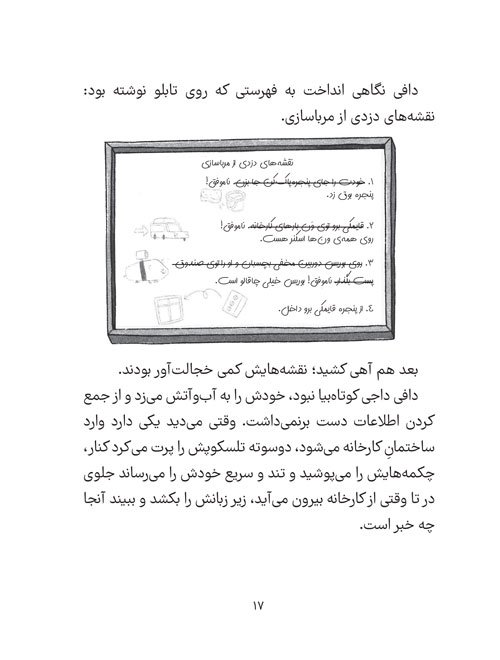 دافی نگاهی انداخت به فهرستی که روی تابلو نوشته بود:
نقشه‌های دزدی از مرباسازی.
نقشه‌های دزدی از مرباسازی
۱. خودت را جای پنجره‌پاک‌کن جا بزن. ناموفق!
پنجره بوق زد.
۲. قایمکی برو توی ون بارهای کارخانه. ناموفق!
روی همه‌ی ون‌ها اسکنر هست.
۳. روی بوریس دوربین مخفی بچسبان و او را توی صندوق
پست بگذار. ناموفق! بوریس خیلی چاقالو است.
۴. از پنجره قایمکی برو داخل.
بعد هم آهی کشید؛ نقشه‌هایش کمی خجالت‌آور بودند.
دافی داجی کوتاه‌بیا نبود، خودش را به آب‌وآتش می‌زد و از جمع
کردن اطلاعات دست برنمی‌داشت. وقتی می‌دید یکی دارد وارد
ساختمانِ کارخانه می‌شود، دوسوته تلسکوپش را پرت می‌کرد کنار،
چکمه‌هایش را می‌پوشید و تند و سریع خودش را می‌رساند جلوی
در تا وقتی از کارخانه بیرون می‌آید، زیر زبانش را بکشد و ببیند آنجا
چه خبر است.
۱۷